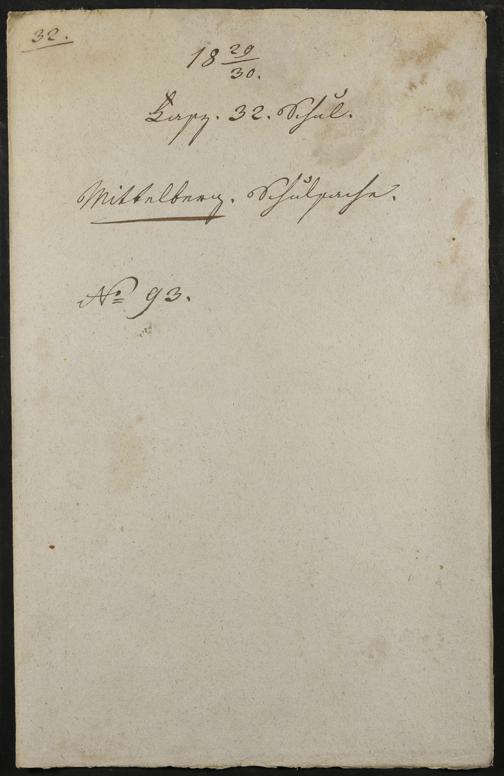 32.
18 29/30.
Kapp. 32. Schul.
Mittelberg. Schulsache.
No 93.